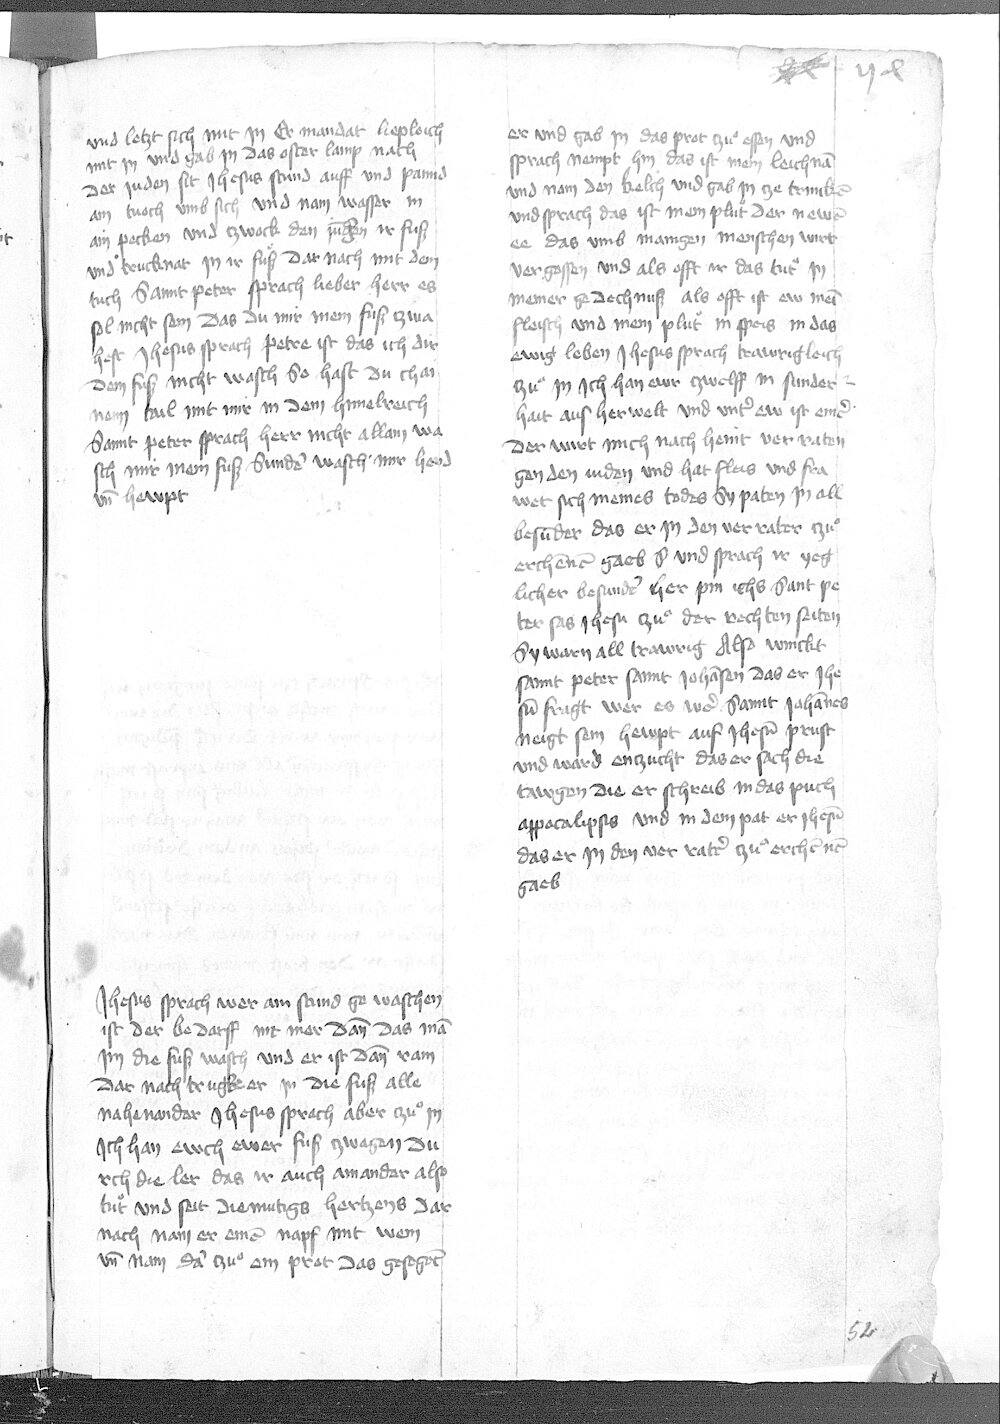 und letzt sich mit in Er mandat liepleich
mit in und gab in das oster lamp nach
Der juden sit Jhesus stund auff und pannd
ain tuoch umb sich und nam wasser in
ain pecken und czwock den jungen ir fusz
und trucknat in ir fusz Dar nach mit dem
tuch Sannt peter sprach lieber herr es
sol nicht sein Das du mir mein fusz czwa
hest Jhesus sprach petre ist das ich dir
Dein fusz nicht wasch So hast Du chai
nem tail mit mir in Dem himelreich
Sannt peter sprach herr nicht allain wa
sch mir mein fusz Sunder̄ wasch mir hend
vn̄ hewpt
Jhesus sprach wer ain stund ge waschen
ist der be Darff nit mer Dan̄ Das mā
Im die fusz wasch und er ist Dan̄ rain
Dar nach trugkt er in Die fusz alle
nahenander Jhesus sprach aber czuͦ in
Ich han ewch ewer fusz czwagen Du
rch die ler das ir auch ainander also
tuͦt und seit Diemutigs hertzens Dar
nach nam er eine͂ napf mit wein
vn̄ nam da͂ czuͦ ein prot Das gesegēt
er und gab in das prot czuͦ essen und
sprach nempt hin das ist mein leichnā
und nam den kelch und gab in ze trincke͂
und sprach das ist mein pluͦt Der newe͂
ee das umb manigen menschen wirt
vergossen und als offt ir das tutͦ in
meiner ge Dechnusz als offt ist ew mei͂
fleisch und mein pluͦt in speis in das
ewig leben Jhesus sprach trawrigleich
czuͦ in Ich han ewr czwelff in sunder
hait aus her welt und unt̄ ew ist eine͂r
Der wirt mich nach heint ver raten
gen den juden und hat fleis und fra
wet sich meines todes Sy paten in all
besūder das er in den ver rater czuͦ
erche͂ne͂ gaeb S und sprach ir yeg
licher besunder̄ her pin ichs Sant pe
ter sas Jhesu czuͦ der rechten seiten
Sy warn all trawrig Also winckt
sannt peter sannt Johāsen das er Jhe
sū fragt wer es wer̄ Sannt Johānes
neigt sein hewpt auf Jhesū prust
und ward enczucht das er sach die
tawgen Die er schreib in das puch
appocalipsis und in dem pat er Jhesū
das er in den ver rater̄ czuͦ erche͂ne͂
gaeb
54